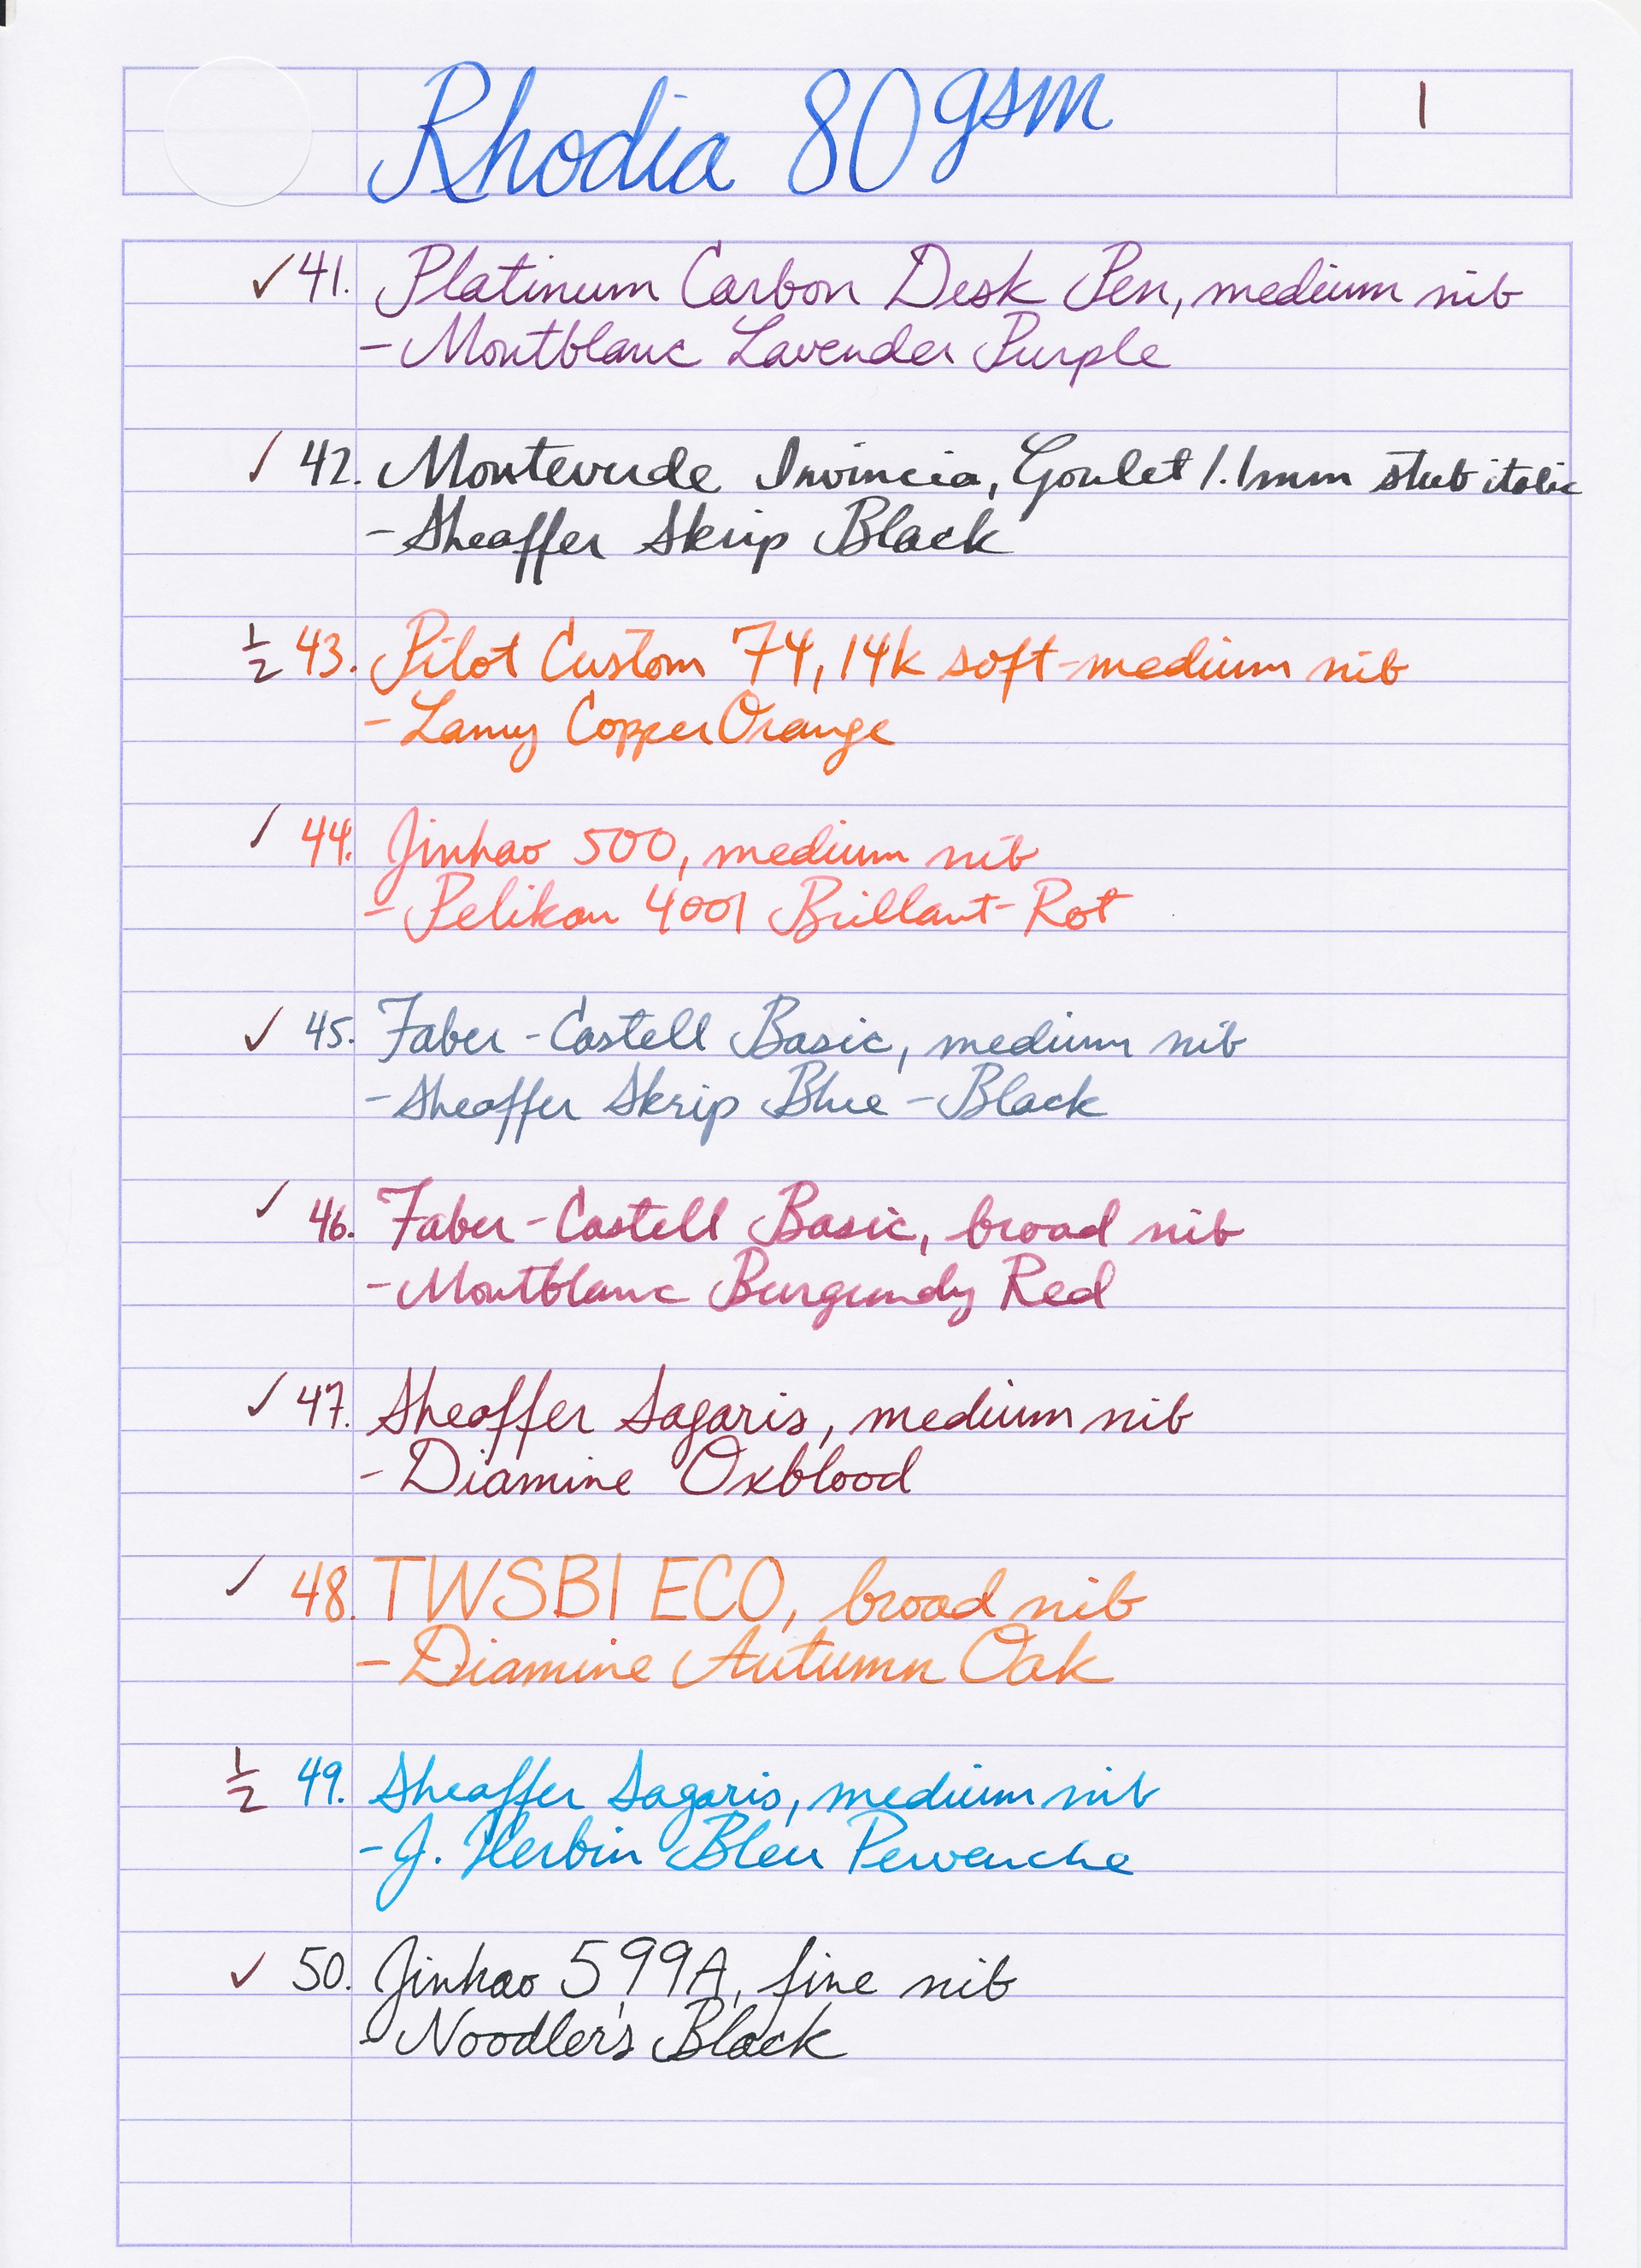 Rhodia 80gsm
1
✓ 41. Platinum Carbon Desk Pen, medium nib
- Montblanc Lavender Purple
✓ 42. Monteverde Invincia, Goulet 1.1mm stub italic
- Sheaffer Skrip Black
1/2 43. Pilot Custom 74, 14k soft-medium nib
- Lamy Copper Orange
✓ 44. Jinhao 500, medium nib
- Pelikan 4001 Brillant-Rot
✓ 45. Faber-Castell Basic, medium nib
- Sheaffer Skrip Blue-Black
✓ 46. Faber-Castell Basic, broad nib
- Montblanc Burgundy Red
✓ 47. Sheaffer Sagaris, medium nib
- Diamine Oxblood
✓ 48. TWSBI ECO, broad nib
- Diamine Autumn Oak
1/2 49. Sheaffer Sagaris, medium nib
- J. Herbin Bleu Pervenche
✓ 50. Jinhao 599A, fine nib
- Noodler's Black